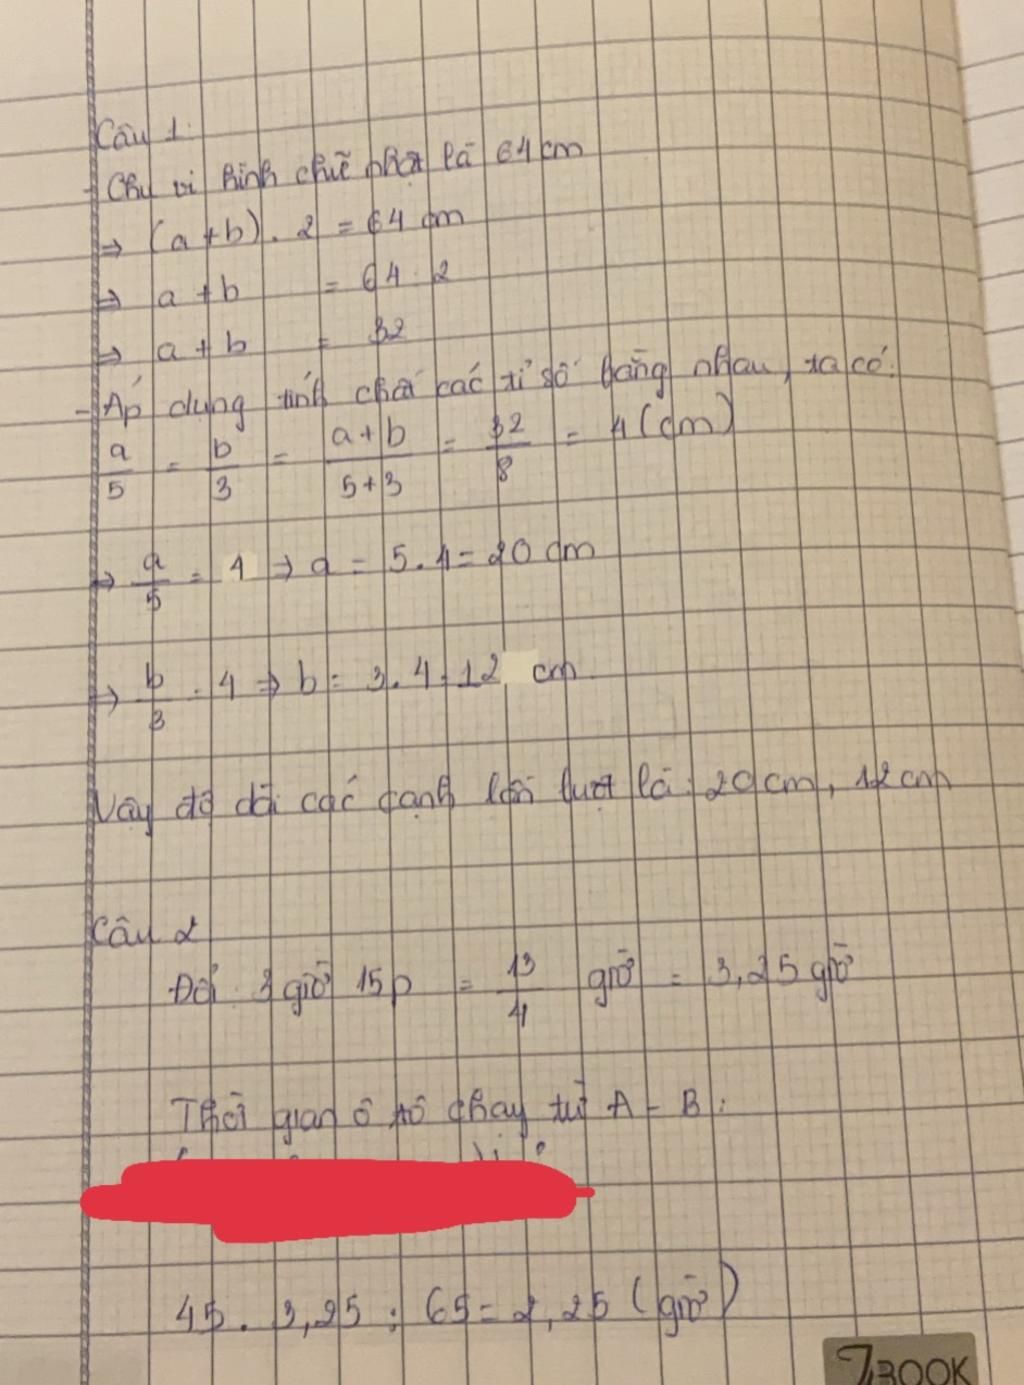 Câu 1:
- Chu vi hình chữ nhật là 64 cm
⇒ (a+b) . 2 = 64 cm
⇒ a + b = 64 : 2
⇒ a + b = 32
- Áp dụng tính chất các tỉ số bằng nhau, ta có:
a/5 = b/3 = (a+b)/(5+3) = 32/8 = 4 (cm)
⇒ a/5 = 4 ⇒ a = 5 . 4 = 20 cm
⇒ b/3 = 4 ⇒ b = 3 . 4 = 12 cm
Vậy độ dài các cạnh lần lượt là: 20 cm, 12 cm
Câu 2
Đổi: 3 giờ 15p = 13/4 giờ = 3,25 giờ
Thời gian ô tô chạy từ A - B:
45 . 3,25 : 65 = 2,25 (giờ)
BOOK